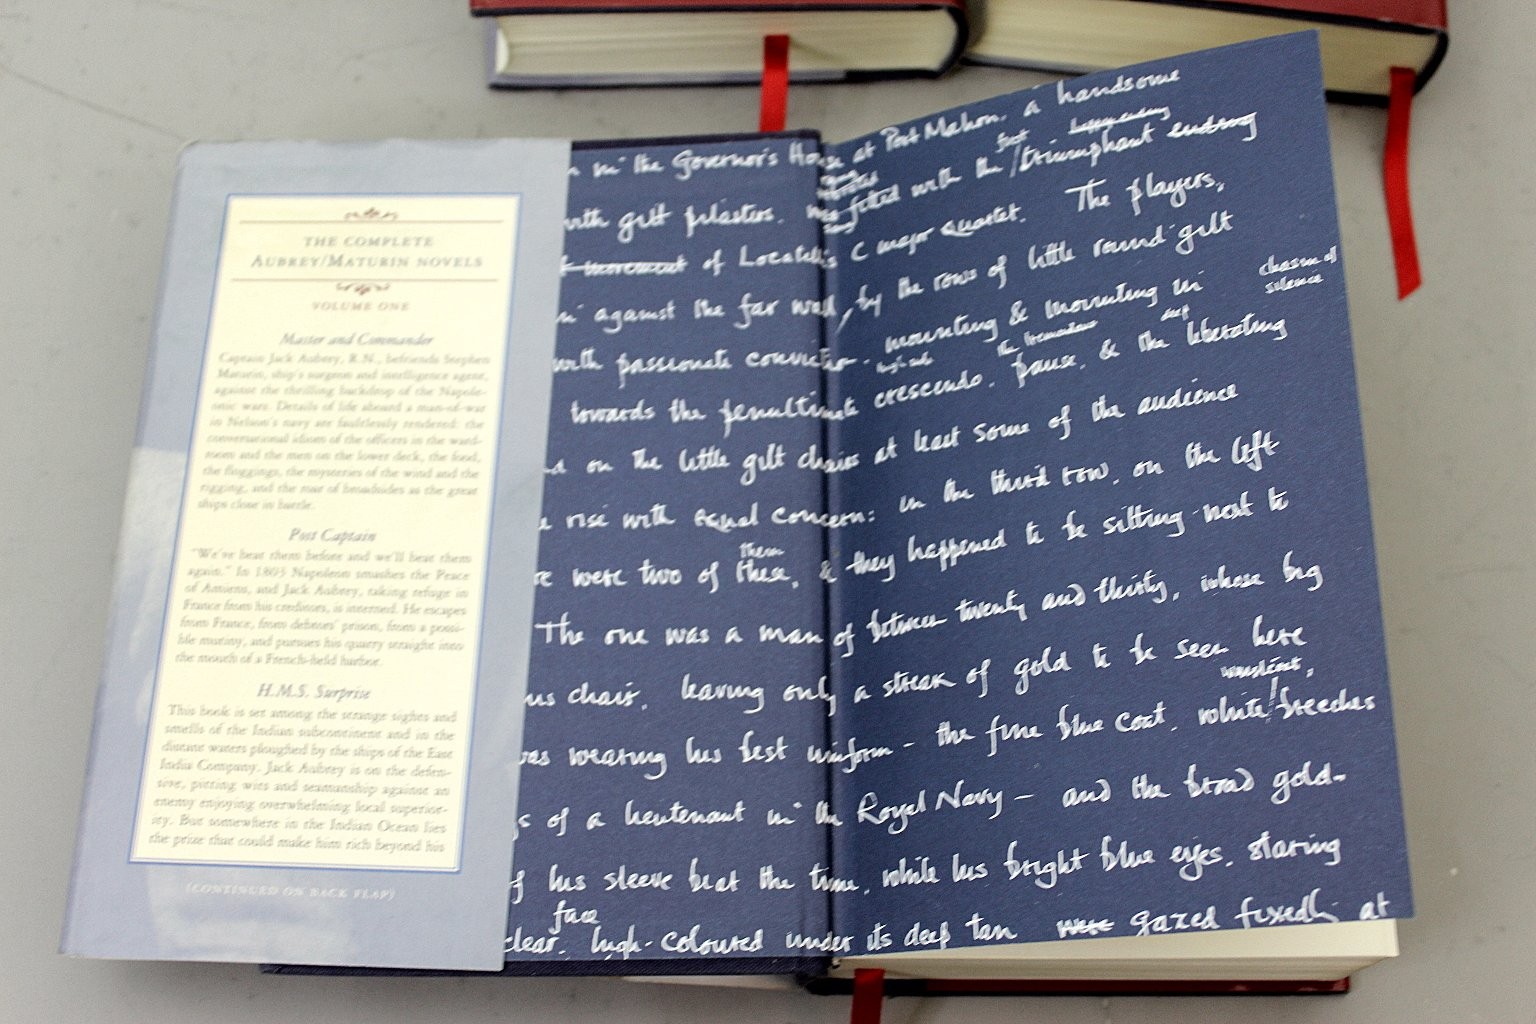 THE COMPLETE
AUBREY/MATURIN NOVELS
VOLUME ONE
Master and Commander
Captain Jack Aubrey, R.N., befriends Stephen
Maturin, ship's surgeon and intelligence agent,
against the thrilling backdrop of the Napole-
onic wars. Details of life aboard a man-of-war
in Nelson's navy are faultlessly rendered: the
conversational idiom of the officers in the ward-
room and the men on the lower deck, the food,
the floggings, the mysteries of the wind and the
rigging, and the roar of broadsides as the great
ships close in battle.
Post Captain
"We've beat them before and we'll beat them
again." In 1803 Napoleon smashes the Peace
of Amiens, and Jack Aubrey, taking refuge in
France from his creditors, is interned. He escapes
from France, from debtors' prison, from a possi-
ble mutiny, and pursues his quarry straight into
the mouth of a French-held harbor.
H.M.S. Surprise
This book is set among the strange sights and
smells of the Indian subcontinent and in the
distant waters ploughed by the ships of the East
India Company. Jack Aubrey is on the defen-
sive, pitting wits and seamanship against an
enemy enjoying overwhelming local superior-
ity. But somewhere in the Indian Ocean lies
the prize that could make him rich beyond his
(CONTINUED ON BACK FLAP)
in the Governor's House at Port Mahon, a handsome
first
with gilt pilasters, was filled with the triumphant ending
movement of Locatelli's C major quartet. The players,
against the far wall, by the rows of little round gilt
chasm of
silence
with passionate conviction mounting & mounting in
the tremendous deep
towards the penultimate crescendo, pause, & the liberating
on the little gilt chairs at least some of the audience
rise with equal concern: in the third row, on the left
them
were two of these, & they happened to be sitting next to
The one was a man of between twenty and thirty, whose big
his chair, leaving only a streak of gold to be seen here
waistcoat,
was wearing his best uniform - the fine blue coat, white breeches
of a lieutenant in the Royal Navy - and the broad gold-
of his sleeve beat the time, while his bright blue eyes, staring
face
clear, high-coloured under its deep tan were gazed fixedly at